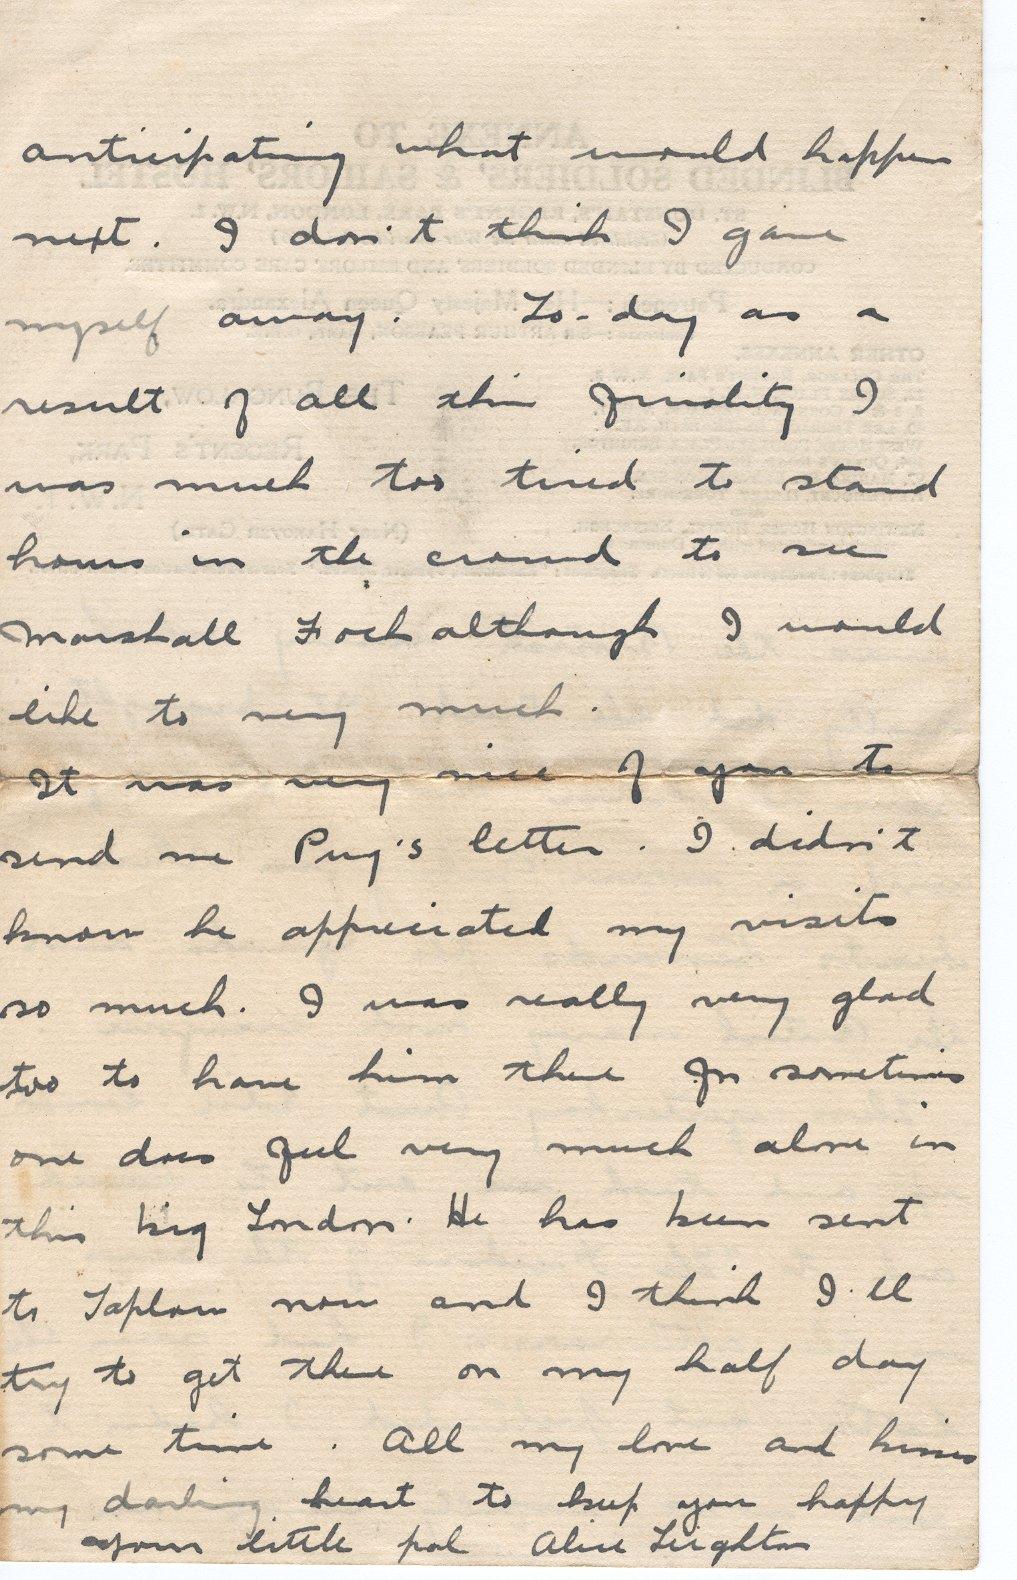 anticipating what would happen
next. I don't think I gave
myself away. To-day as a
result of all this frivolity I
was much too tired to stand
hours in the crowd to see
Marshall Foch although I would
like to very much.
It was very nice of you to
send me Pug's letter. I didn't
know he appreciated my visits
so much. I was really very glad
too to have him there for sometimes
one does feel very much alone in
this big London. He has been sent
to Taplow now and I think I'll
try to get there on my half day
some time. All my love and kisses
my darling heart to keep you happy
your little pal Alice Leighton